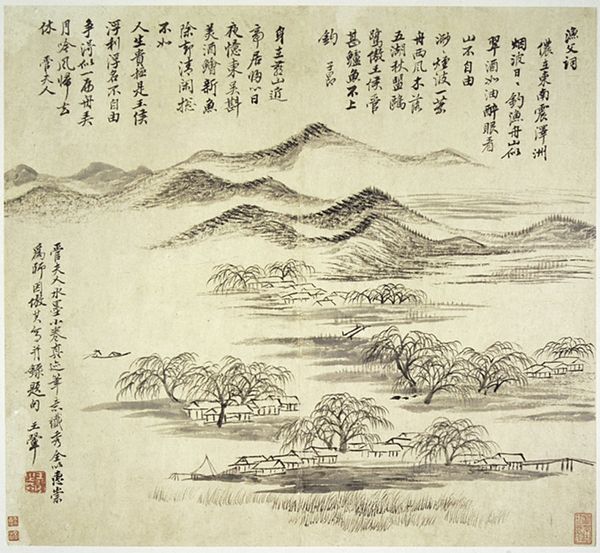 漁父詞
儂住東南震澤洲
烟波日日釣漁舟山似
翠酒如油醉眼看
山不自由
渺渺煙波一葉
舟西風木落
五湖秋盟鷗
鷺傲王侯管
甚鱸魚不上
鈎 子昂
身在燕山近
帝居歸心日
夜憶東吳斟
美酒鱠新魚
除卻清閑揔
不如
人生貴極是王侯
浮利浮名不自由
爭得似一扁舟弄
月吟風歸去
休 管夫人
管夫人水墨小卷真迹筆意纖秀全以惠崇
爲師因倣其寫并錄題句 王翬